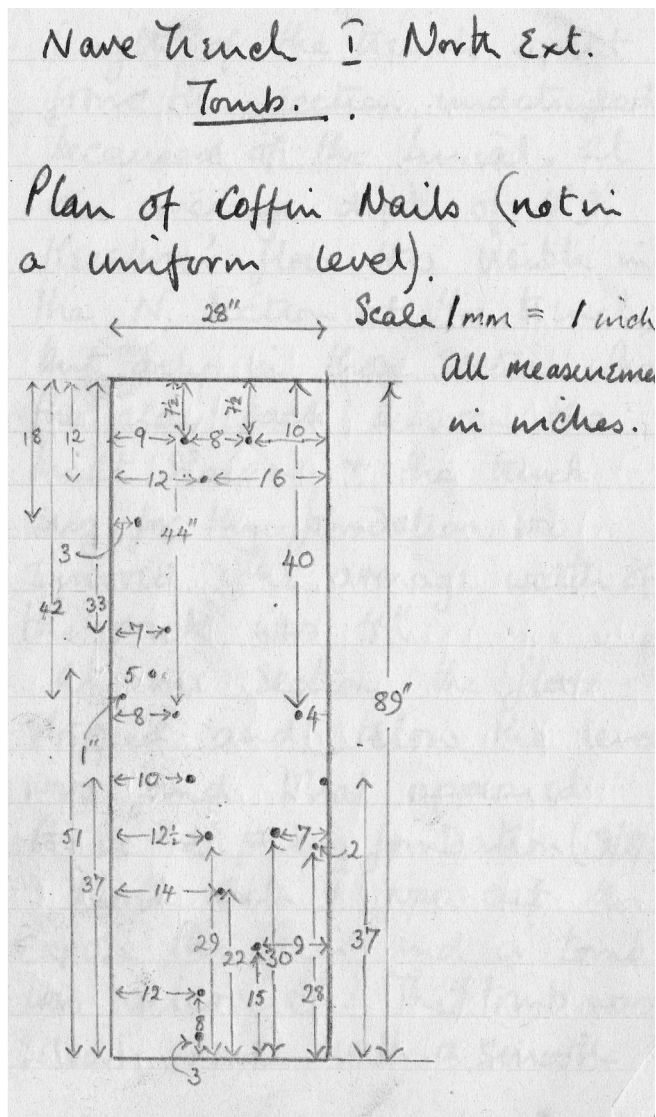 Nave Trench I North Ext.
Tomb.
Plan of Coffin Nails (not in
a uniform level).
28"
Scale 1mm = 1 inch
All measureme
in inches.
7½ 7½
18 12 9 8 10
12 16
3 44"
40
42 33
7
5
8 4 89"
1"
10
51 12½ 7
2
37 14
29 22 30 9 37
12 15 28
8
3